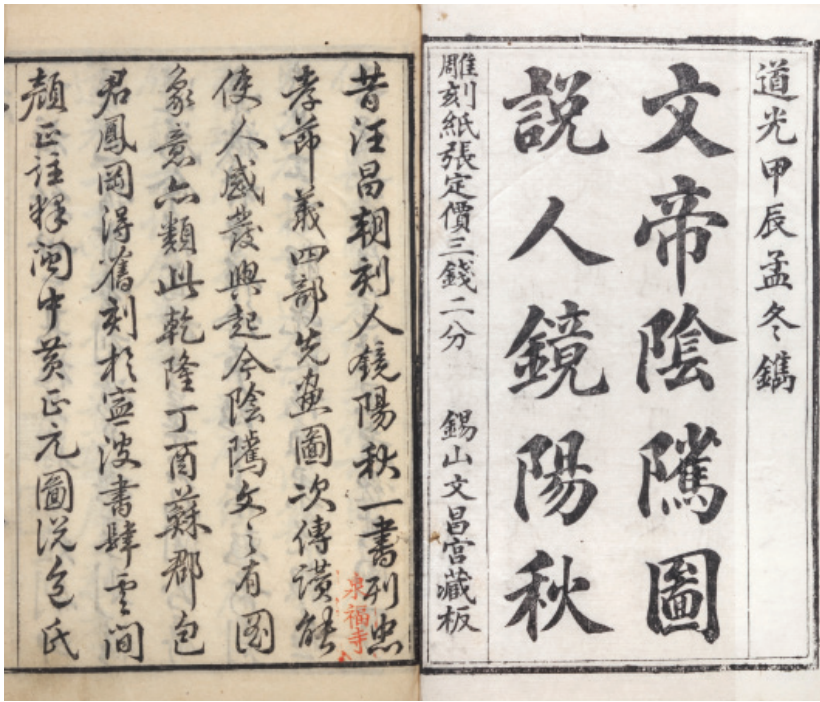 道光甲辰孟冬鐫
文帝陰隲圖
說人鏡陽秋
雕刻紙張定價三錢二分 錫山文昌宮藏板
昔汪昌朝刻人鏡陽秋一書列忠
孝節義四部先畫圖次傳讚能
使人感發興起今陰隲文之有圖
象意亦類此乾隆丁酉蘇郡包
君鳳岡得舊刻於寧波書肆雲間
顏正註釋閩中黃正元圖說包氏
泉福寺